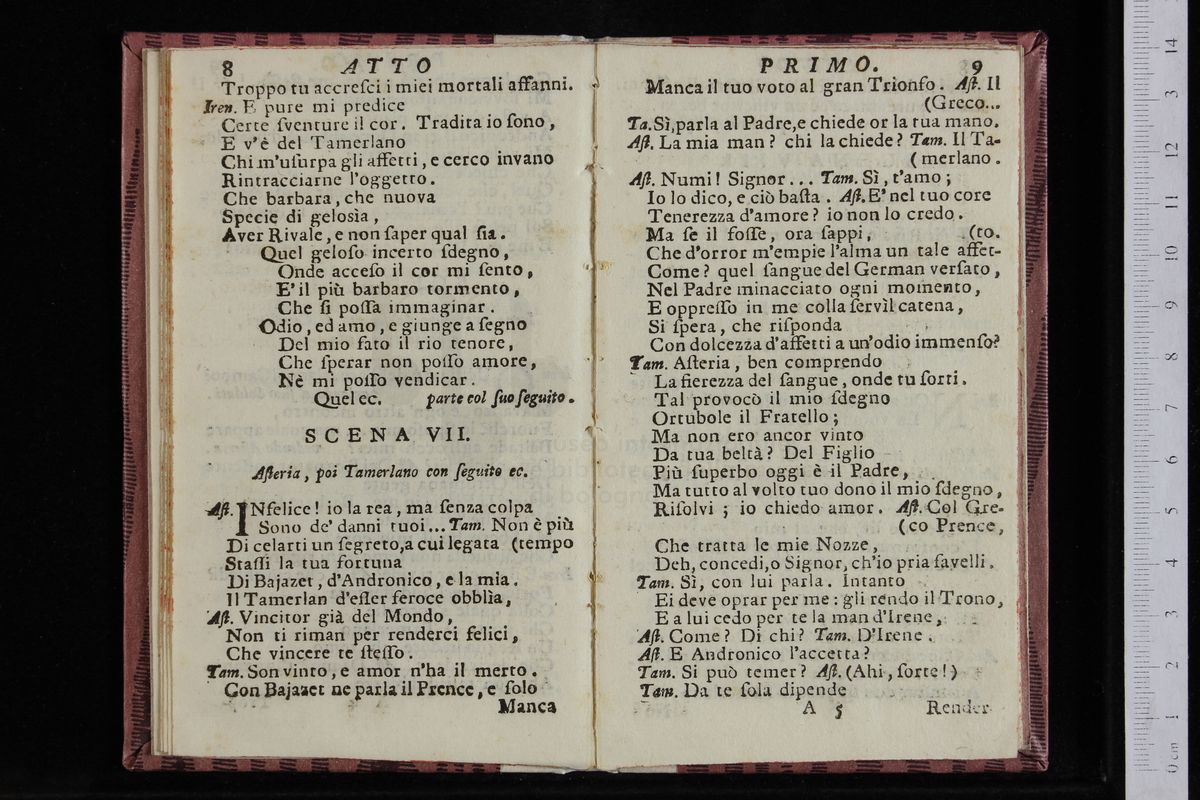 8 ATTO
Troppo tu accreſci i miei mortali affanni.
Iren. E pure mi predice
Certe ſventure il cor. Tradita io ſono,
E v'è del Tamerlano
Chi m'uſurpa gli affetti, e cerco invano
Rintracciarne l'oggetto.
Che barbara, che nuova
Specie di gelosìa,
Aver Rivale, e non ſaper qual ſia.
Quel geloſo incerto ſdegno,
Onde acceſo il cor mi ſento,
E' il più barbaro tormento,
Che ſi poſſa immaginar.
Odio, ed amo, e giunge a ſegno
Del mio fato il rio tenore,
Che ſperar non poſſo amore,
Nè mi poſſo vendicar.
Quel ec. parte col ſuo ſeguito.
SCENA VII.
Aſteria, poi Tamerlano con ſeguito ec.
Aſt. INfelice! io la rea, ma ſenza colpa
Sono de' danni tuoi... Tam. Non è più
Di celarti un ſegreto, a cui legata (tempo
Staſſi la tua fortuna
Di Bajazet, d'Andronico, e la mia.
Il Tamerlan d'eſſer feroce obblìa,
Aſt. Vincitor già del Mondo,
Non ti riman per renderci felici,
Che vincere te ſteſſo.
Tam. Son vinto, e amor n'ha il merto.
Con Bajazet ne parla il Prence, e ſolo
Manca
PRIMO. 9
Manca il tuo voto al gran Trionfo. Aſt. Il
(Greco...
Ta. Sì, parla al Padre, e chiede or la tua mano.
Aſt. La mia man? chi la chiede? Tam. Il Ta-
(merlano.
Aſt. Numi! Signor... Tam. Sì, t'amo;
Io lo dico, e ciò baſta. Aſt. E' nel tuo core
Tenerezza d'amore? io non lo credo.
Ma ſe il foſſe, ora ſappi, (to.
Che d'orror m'empie l'alma un tale affet-
Come? quel ſangue del German verſato,
Nel Padre minacciato ogni momento,
E oppreſſo in me colla ſervìl catena,
Si ſpera, che riſponda
Con dolcezza d'affetti a un'odio immenſo?
Tam. Aſteria, ben comprendo
La fierezza del ſangue, onde tu ſorti.
Tal provocò il mio ſdegno
Ortubole il Fratello;
Ma non ero ancor vinto
Da tua beltà? Del Figlio
Più ſuperbo oggi è il Padre,
Ma tutto al volto tuo dono il mio ſdegno,
Riſolvi; io chiedo amor. Aſt. Col Gre-
(co Prence,
Che tratta le mie Nozze,
Deh, concedi, o Signor, ch'io pria favelli.
Tam. Sì, con lui parla. Intanto
Ei deve oprar per me: gli rendo il Trono,
E a lui cedo per te la man d'Irene.
Aſt. Come? Di chi? Tam. D'Irene.
Aſt. E Andronico l'accetta?
Tam. Si può temer? Aſt. (Ahi, ſorte!)
Tam. Da te ſola dipende
A 5 Render
14
13
12
11
10
9
8
7
6
5
4
3
2
1
0 cm